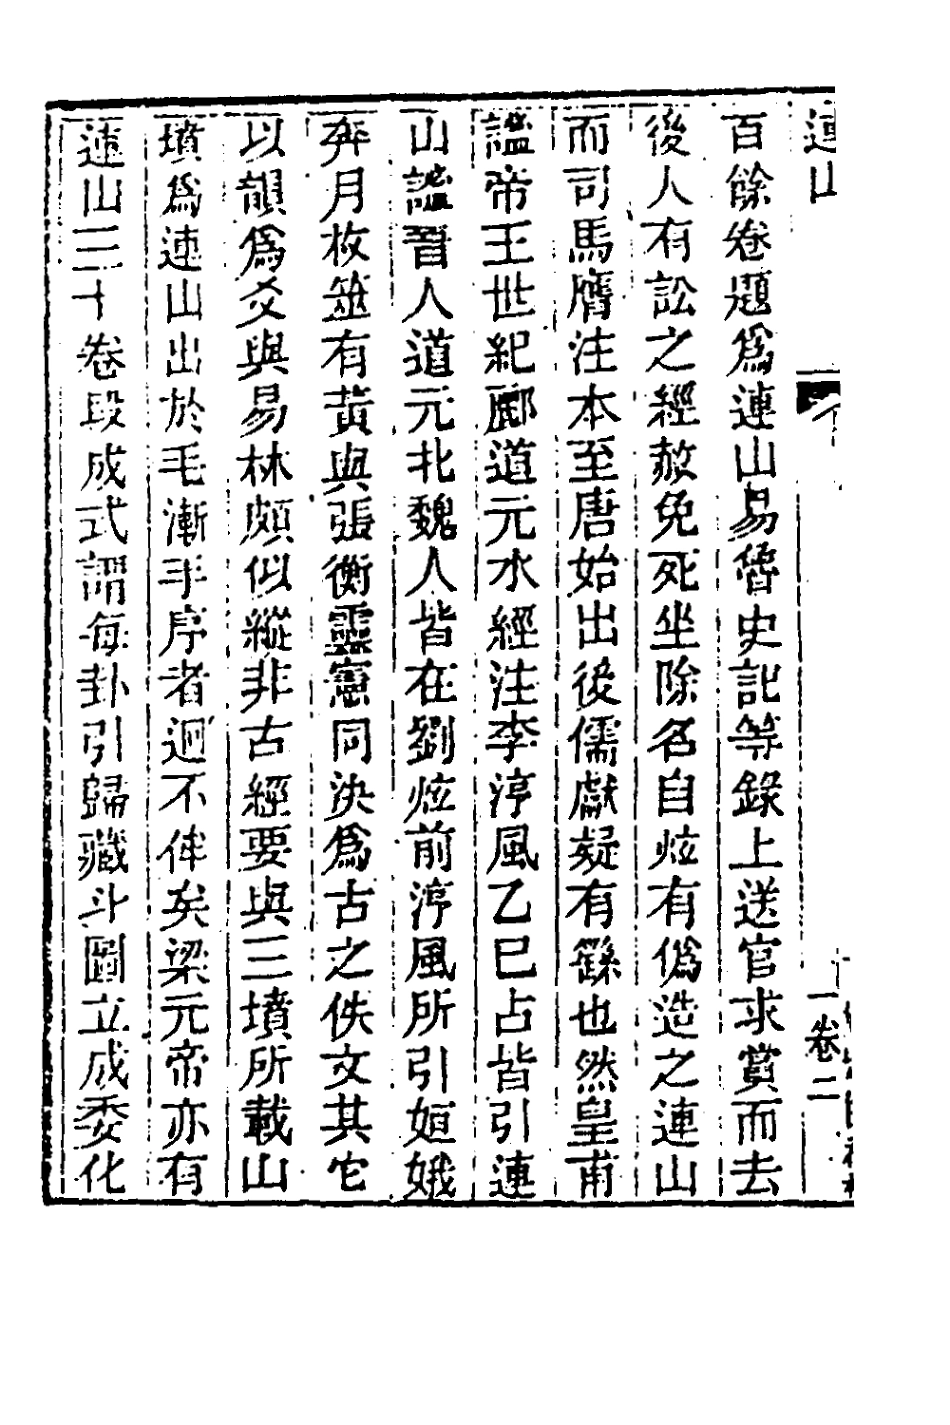 連山
一 卷二
百餘卷題爲連山易魯史記等錄上送官求賞而去
後人有訟之經赦免死坐除名自炫有僞造之連山
而司馬膺注本至唐始出後儒獻疑有繇也然皇甫
謐帝王世紀酈道元水經注李淳風乙巳占皆引連
山謐晉人道元北魏人皆在劉炫前淳風所引姮娥
奔月枚筮有黃與張衡靈憲同決爲古之佚文其它
以韻爲爻與易林頗似縱非古經要與三墳所載山
墳爲連山出於毛漸手序者迥不侔矣梁元帝亦有
連山三十卷段成式謂每卦引歸藏斗圖立成委化